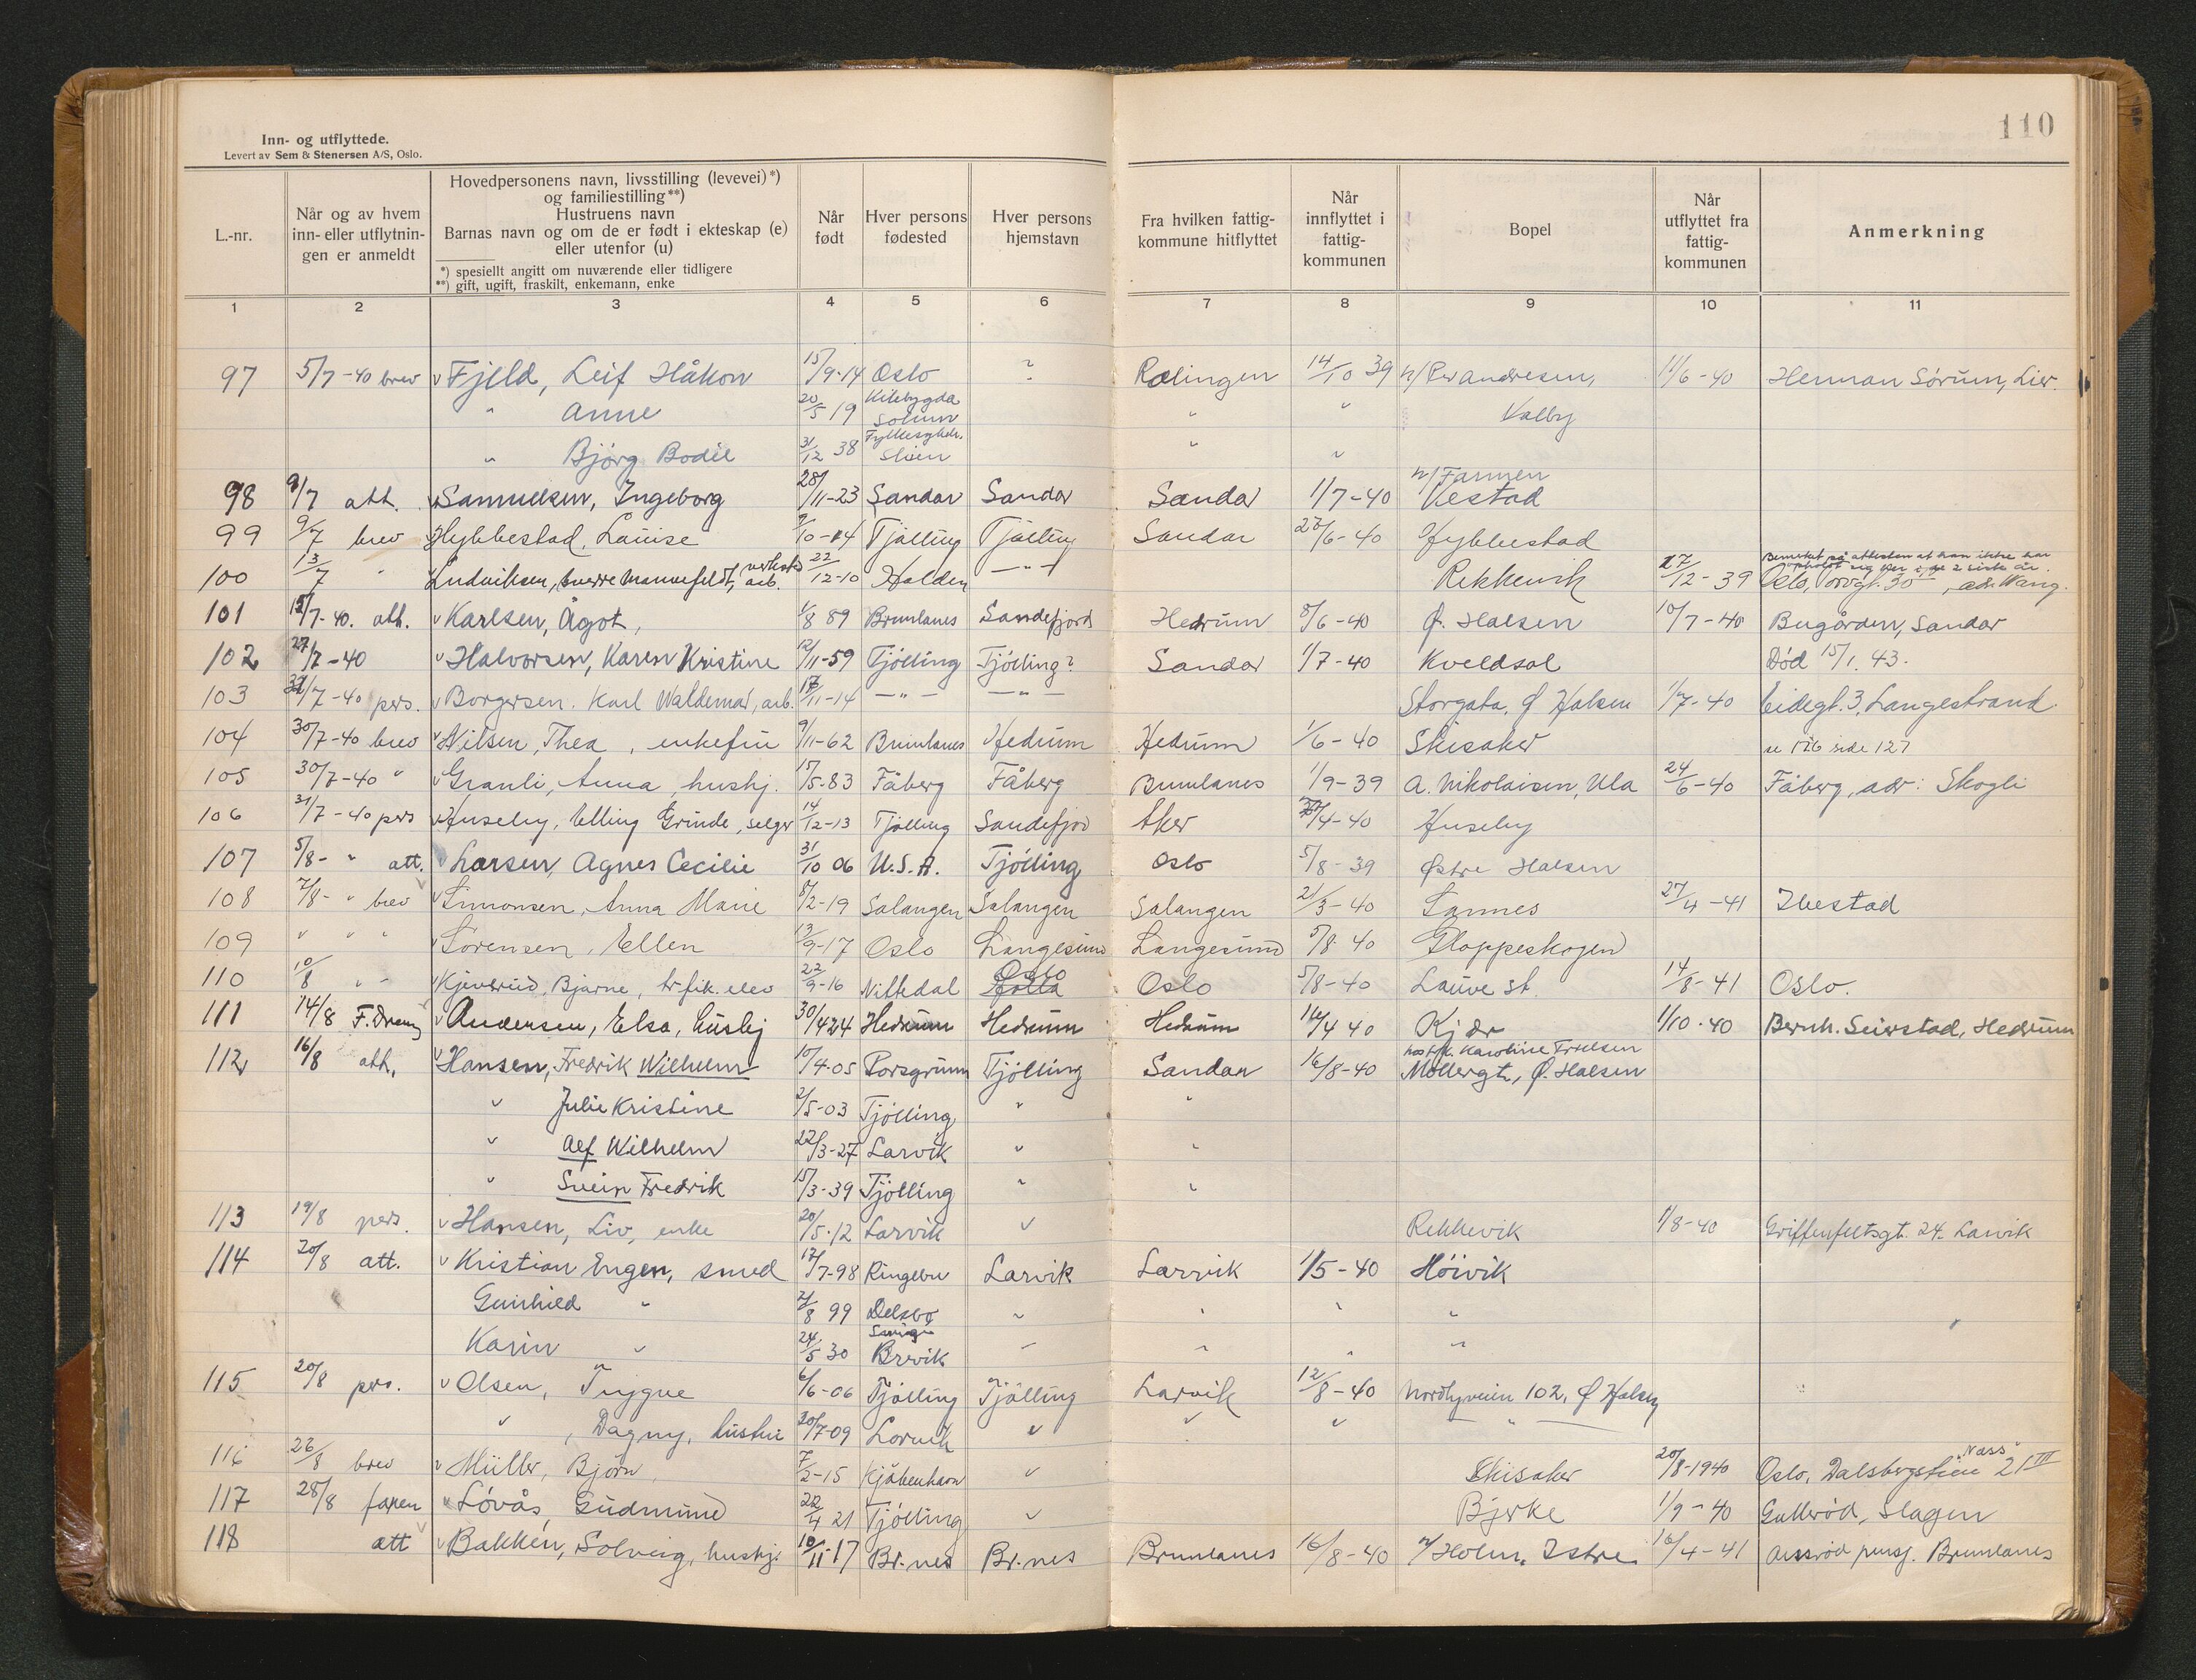 Inn- og utflyttede.
Levert av Sem & Stenersen A/S, Oslo.
110
L.-nr.
Når og av hvem
inn- eller utflytnin-
gen er anmeldt
Hovedpersonens navn, livsstilling (levevei)*)
og familiestilling**)
Hustruens navn
Barnas navn og om de er født i ekteskap (e)
eller utenfor (u)
*) spesiellt angitt om nuværende eller tidligere
**) gift, ugift, fraskilt, enkemann, enke
Når
født
Hver persons
fødested
Hver persons
hjemstavn
Fra hvilken fattig-
kommune hitflyttet
Når
innflyttet i
fattig-
kommunen
Bopel
Når
utflyttet fra
fattig-
kommunen
Anmerkning
1 2 3 4 5 6 7 8 9 10 11
97 5/7-40 brev Fjeld, Leif Håkon 15/9-14 Oslo ? Rælingen 14/10 39 h/Per Andresen, 11/6-40 Herman Sørum, Lier.
" Anne 20/5 19 Kilebygda Solum " " Valby
" Bjørg Bodil 31/12 38 Fylkessykeh. Skien " "
98 9/7 att. Samuelsen, Ingeborg 28/11-23 Sandar Sandar Sandar 1/7-40 h/Farmen Vestad
99 9/7 brev Hybbestad, Louise 9/10-14 Tjølling Tjølling Sandar 27/6-40 Hybbestad
100 13/7 " Ludviksen, Sverre Mannsfeldt, verksted arb. 22/12-10 Halden —"— Rekkevik 27/12-39 Bemerket på attesten at han ikke har opholdt sig her i de 2 siste år. Oslo, Torvgt. 30, adr. Wang.
101 15/7-40. att. Karlsen, Ågot, 1/8 89 Brunlanes Sandefjord Hedrum 8/6-40 Ø. Halsen 10/7-40 Bugården, Sandar
102 27/7-40 Halvorsen, Karen Kristine 12/11-59 Tjølling Tjølling? Sandar 1/7-40 Kveldsol Død 15/1. 43.
103 31/7-40 pers. Borgersen. Karl Waldemar, arb. 17/11-14 —"— —"— Storgata, Ø Halsen 1/7-40 Eidegt. 3, Langestrand.
104 30/7-40 brev Nilsen, Thea, enkefru 9/11-62 Brunlanes Hedrum Hedrum 1/6-40 Skisaker se 176 side 127
105 30/7-40 " Granli, Anna, hushj. 15/5-83 Fåberg Fåberg Brunlanes 1/9-39 A. Nikolaisen, Ula 24/6-40 Fåberg, adr: Skogli
106 31/7-40 pers Huseby, Elling Grinde, selger 14/12-13 Tjølling Sandefjord Aker /4-40 Huseby
107 5/8- " att. Larsen, Agnes Cecilie 31/10 06 U.S.A. Tjølling Oslo 5/8-39 Østre Halsen
108 7/8- " brev Simonsen, Anna Marie 8/2-19 Salangen Salangen Salangen 21/3-40 Sannes 27/4-41 Ibestad
109 " " " Sørensen, Ellen 13/9-17 Oslo Langesund Langesund 5/8 40 Gloppeskogen
110 10/8 " " Kjeverud, Bjarne, trfik. elev 22/9-16 Nittedal Oslo Oslo 5/8-40 Lauve st. 14/8-41 Oslo.
111 14/8 Andersen, Elsa, hushj 30/4 24 Hedrum Hedrum Hedrum 16/4 40 Kjær 1/10-40 Bernh. Seierstad, Hedrum
112 16/8 att. Hansen, Fredrik Wilhelm 10/4-05 Porsgrunn Tjølling Sandar 16/8-40 hos fk. Karoline Trulsen Møllergt, Ø. Halsen
" Julie Kristine 2/5-03 Tjølling " "
" Alf Wilhelm 22/3-27 Larvik " "
" Svein Fredrik 15/3-39 Tjølling " "
113 19/8 pers. Hansen, Liv, enke 20/5-12 Larvik " Rekkevik 1/8-40 Griffenfeltsgt. 24. Larvik
114 20/8 att. Kristian Engen, smed 17/7-98 Ringebu Larvik Larvik 1/5-40 Høivik
Gunhild " 2/8 99 Delsbo Sverige " " " "
Karin " 24/5 30 Brevik " " " "
115 20/8 pers. Olsen, Trygve 6/6-06 Tjølling Tjølling Larvik 12/8-40 Nordbyveien 102, Ø Halsen
" , Dagny, hustru 30/7-09 Larvik " " " — " —
116 26/8 brev Müller, Bjørn, 7/2-15 Kjøbenhavn " Skisaker 20/8-1940 Oslo, Dalsbergstien 21 III
117 28/8 Løvås, Gudmund 22/4 21 Tjølling " Bjerke 1/9-40 Gullerød, Slagen
118 att Bakken, Solveig, hushj. 10/11-17 Br.nes Br.nes Brunlanes 16/8-40 h/Holm, Istre 16/4-41 pensj. Brunlanes